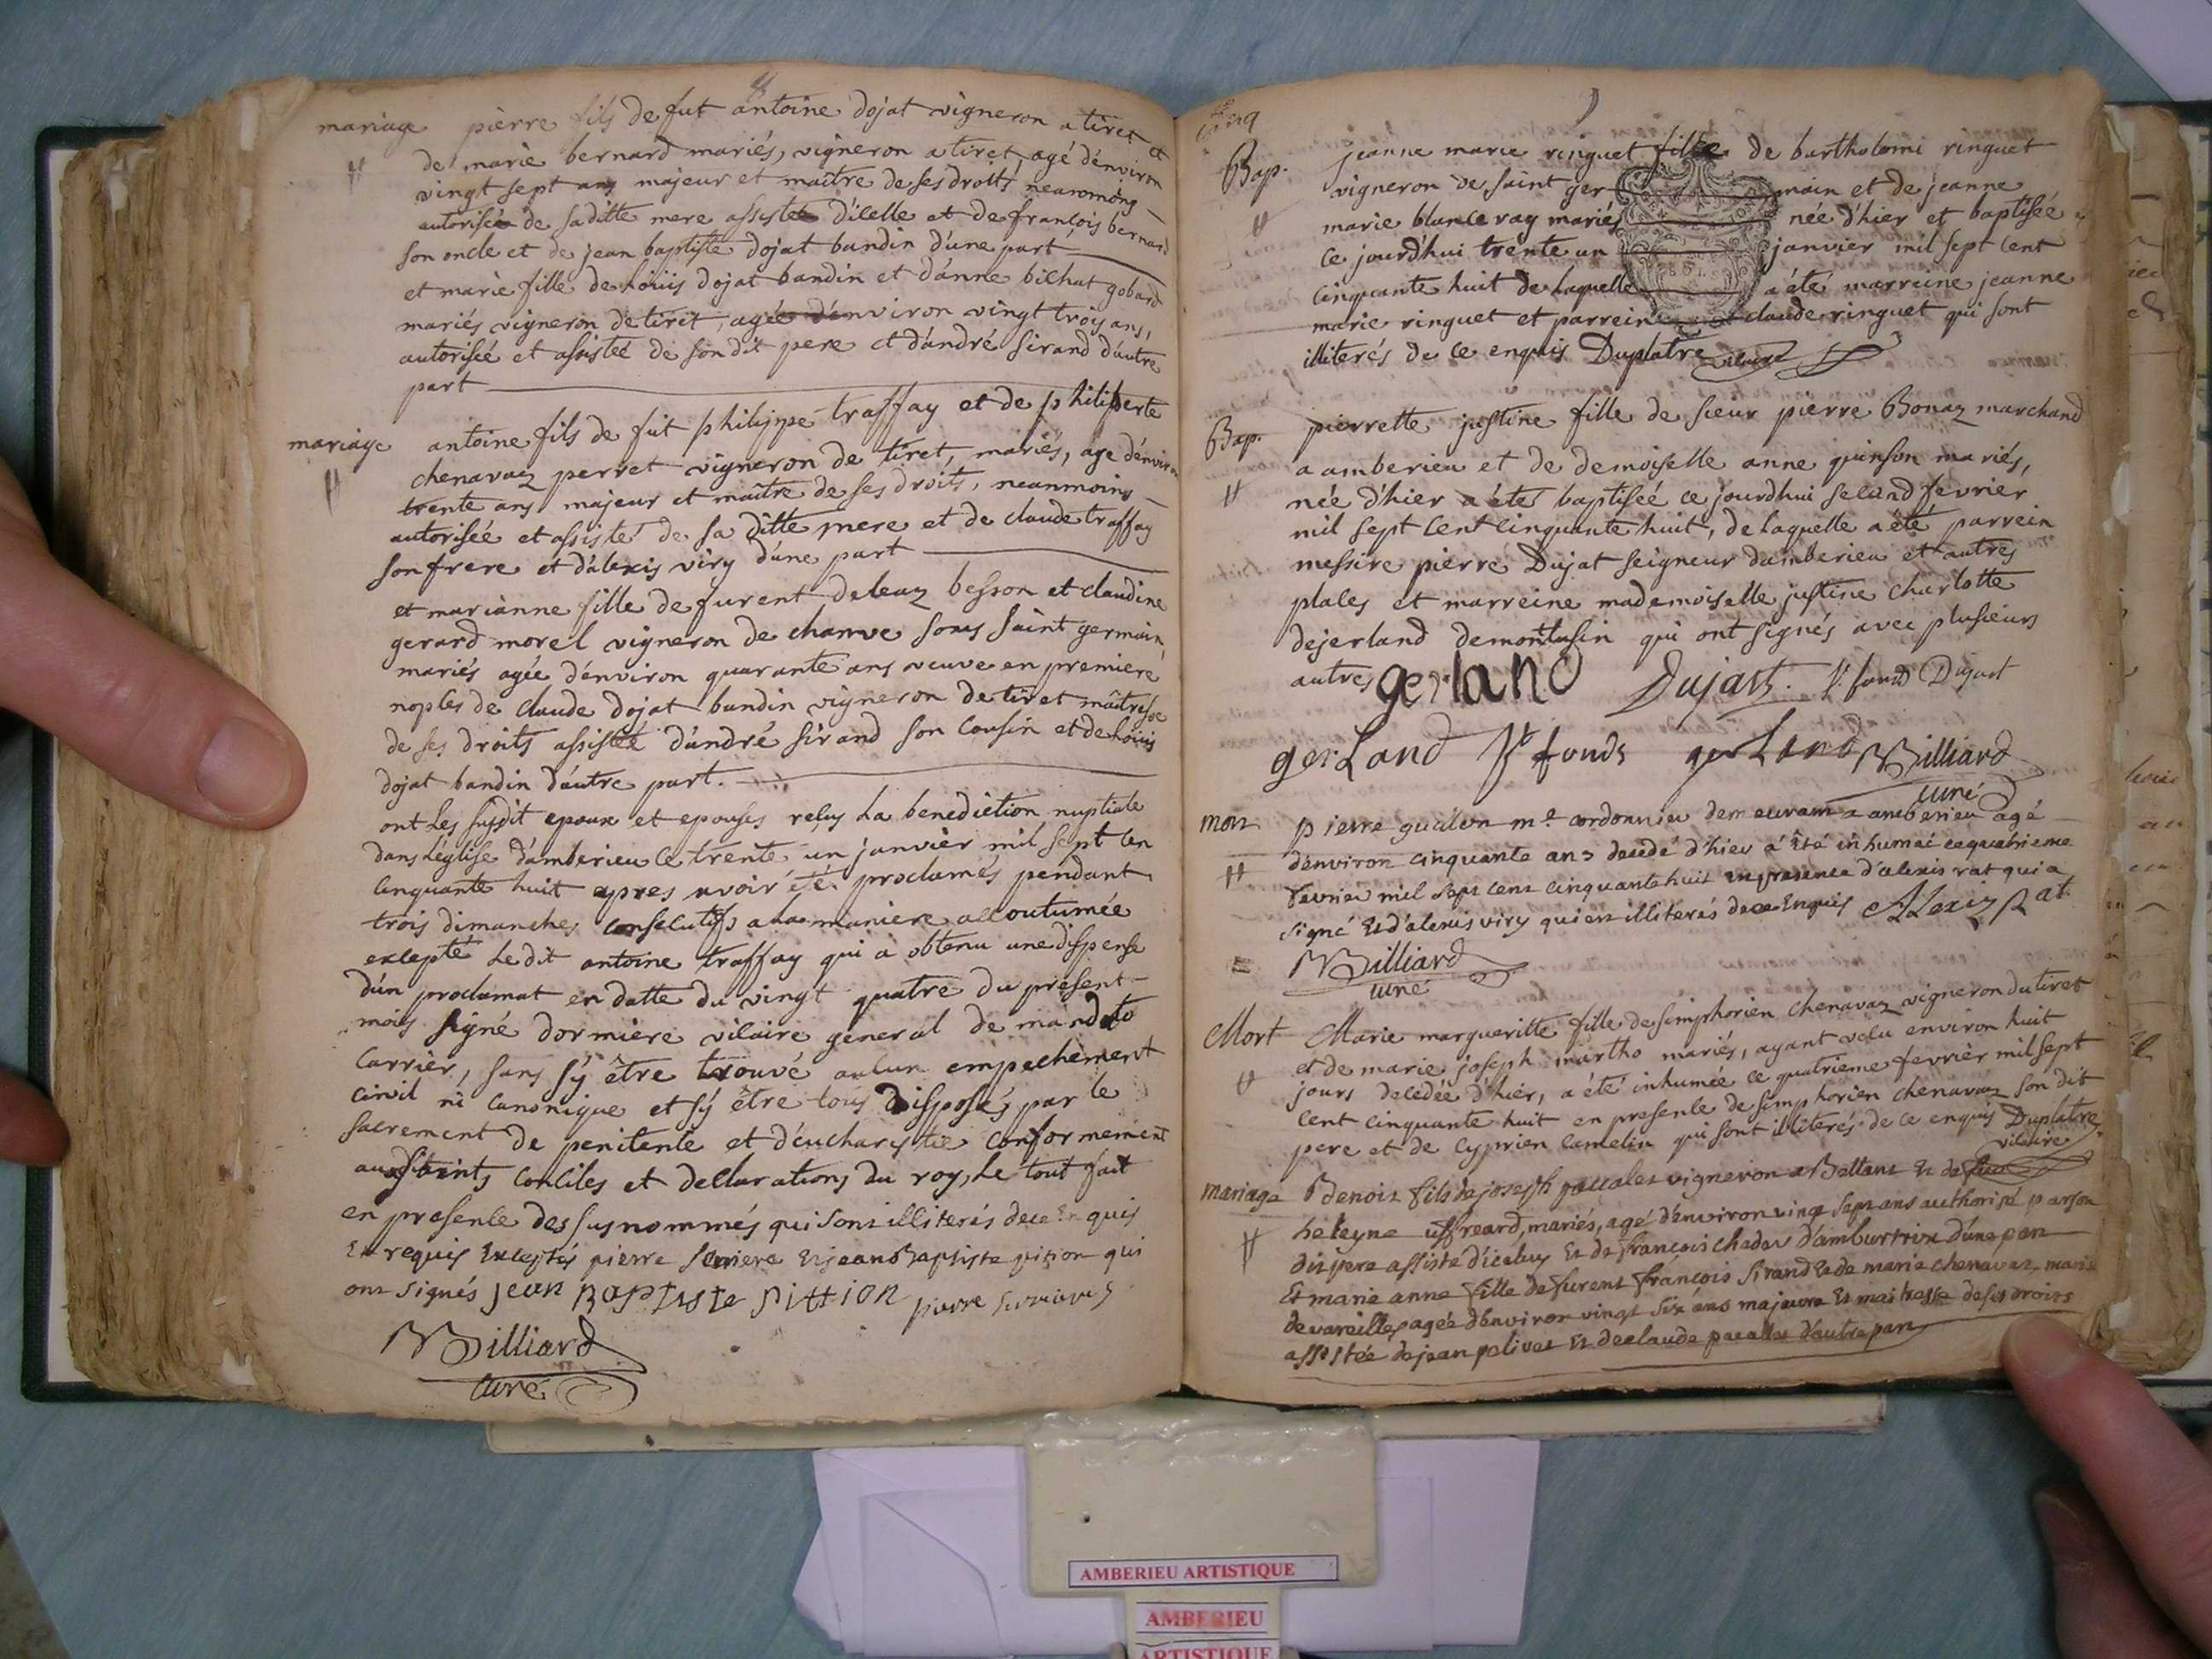 mariage pierre fils de fut antoine dojat vigneron a tiret et
de marie bernard mariés, vigneron a tiret, agé d'environ
vingt sept ans majeur et maître de ses droits neanmoins
autorisé de sa ditte mere assisté d'icelle et de françois bernard
son oncle et de jean baptiste dojat bandin d'une part
et marie fille de loüis dojat bandin et d'anne bilhat gobard
mariés vigneron de tiret, agée d'environ vingt trois ans,
autorisée et assistée de son dit pere et d'andré sirand d'autre
part
mariage antoine fils de fut philippe traffay et de philiberte
chenavaz perret vigneron de tiret, mariés, age d'environ
trente ans majeur et maître de ses droits, neanmoins
autorisée et assisté de sa ditte mere et de claude traffay
son frere et d'alexis viry d'une part
et marianne fille de furent deleaz besson et claudine
gerard morel vigneron de chanve sous saint germain,
mariés agée d'environ quarante ans veuve en premiere
noples de claude dojat bandin vigneron de tiret maîtresse
de ses droits assistée d'andré sirand son cousin et de loüis
dojat bandin d'autre part.
ont les susdit epoux et epouses reçus la benediction nuptiale
dans l'église d'amberieu le trente un janvier mil sept cen
cinquante huit apres avoir été proclamés pendant
trois dimanches consecutifs a la maniere accoutumée
excepté le dit antoine traffay qui a obtenu une dispense
d'un proclamat en datte du vingt quatre du present
mois signé dormiere vicaire general de mandato
carrier, sans s'y être trouvé aucun empechement
civil ni canonique et s'y être tous disposés par le
sacrement de penitence et d'eucharistie conformement
aux saints conciles et declarations du roy, le tout fait
en presence des susnommés qui sont illiterés de ce enquis
et requis exceptés pierre et jean baptiste pition qui
ont signés jean Baptiste pittion pierre
Billiard
curé
Bap. jeanne marie ringuet fille de bartholomi ringuet
vigneron de saint germain et de jeanne
marie blanc ray mariés née d'hier et baptisée
ce jourd'hui trente un janvier mil sept cent
cinquante huit de laquelle a été marreine jeanne
marie ringuet et parrein claude ringuet qui sont
illiterés de ce enquis Duplatre vicaire
Bap. pierrette justine fille de sieur pierre Bonaz marchand
a amberieu et de demoiselle anne quinson mariés,
née d'hier a été baptisée ce jourdhui second fevrier
mil sept cent cinquante huit, de laquelle a été parrein
messire pierre Dujat seigneur damberieu et autres
places et marreine mademoiselle justine charlotte
dejerland demontlusin qui ont signés avec plusieurs
autres gerland Dujast. St fond Dujast
gerland St fonds gerland Billiard
curé
mort pierre m.e cordonnier demeurant a amberieu agé
d'environ cinquante ans decedé d'hier a été inhumé ce quatrieme
fevrier mil sept cent cinquante huit en presence d'alexis rat qui a
signé et d'alexis viry qui est illiterés de ce enquis Alexis Rat
Billiard
curé
Mort Marie margueritte fille de simphorien chenavaz vigneron du tiret
et de marie joseph martho mariés, ayant vecu environ huit
jours decedée d'hier, a été inhumée ce quatrieme fevrier mil sept
cent cinquante huit en presence de simphorien chenavaz son dit
pere et de cyprien camelin qui sont illiterés de ce enquis Duplatre
vicaire
mariage Benoit fils de joseph vigneron a Bettant et de
heleyne uffreard, mariés, agé d'environ vingt sept ans authorisé par son
dit pere assisté d'iceluy et de françois d'ambutrix d'une part
Et marie anne fille de furent françois sirand et de marie chenavaz, mariés
de vareilles agée d'environ vingt six ans majeure et maitresse de ses droits
assistée de jean et de claude d'autre part
AMBERIEU ARTISTIQUE
AMBERIEU
ARTISTIQUE